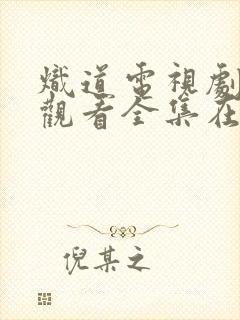 熾道電視劇
觀看全集在
倪某之